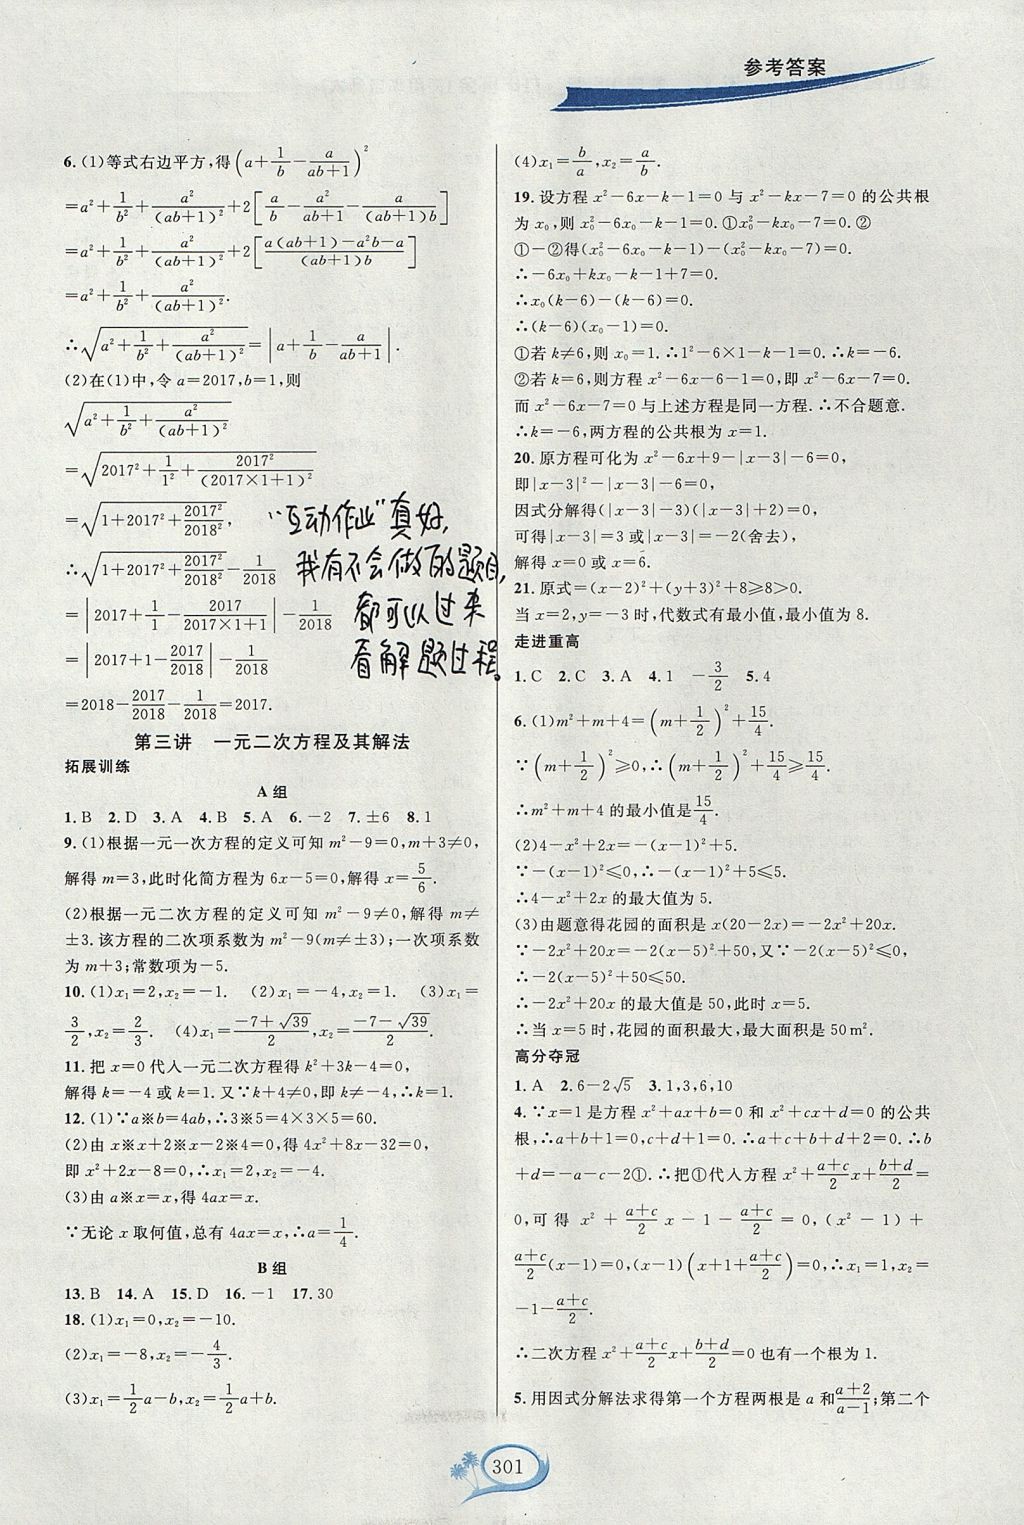 参考答案
6.(1)等式右边平方,得(a+1/b−a/(ab+1))²
=a²+1/b²+a²/(ab+1)²+2[a/b−a²/(ab+1)−a/((ab+1)b)]
=a²+1/b²+a²/(ab+1)²+2[(a(ab+1)−a²b−a)/((ab+1)b)]
=a²+1/b²+a²/(ab+1)².
∴√(a²+1/b²+a²/(ab+1)²)=|a+1/b−a/(ab+1)|.
(2)在(1)中,令a=2017,b=1,则
√(a²+1/b²+a²/(ab+1)²)
=√(2017²+1/1²+2017²/(2017×1+1)²)
=√(1+2017²+2017²/2018²),
∴√(1+2017²+2017²/2018²)−1/2018
=|2017+1/1−2017/(2017×1+1)|−1/2018
=|2017+1−2017/2018|−1/2018
=2018−2017/2018−1/2018=2017.
“互动作业”真好,
我有不会做的题目,
都可以过来
看解题过程。
第三讲 一元二次方程及其解法
拓展训练
A组
1.B 2.D 3.A 4.B 5.A 6.−2 7.±6 8.1
9.(1)根据一元一次方程的定义可知m²−9=0,m+3≠0,
解得m=3,此时化简方程为6x−5=0,解得x=5/6.
(2)根据一元二次方程的定义可知m²−9≠0,解得m≠
±3.该方程的二次项系数为m²−9(m≠±3);一次项系数
为m+3;常数项为−5.
10.(1)x₁=2,x₂=−1. (2)x₁=−4,x₂=1. (3)x₁=
3/2,x₂=2/3. (4)x₁=(−7+√39)/2,x₂=(−7−√39)/2.
11.把x=0代人一元二次方程得k²+3k−4=0,
解得k=−4或k=1.又∵k+4≠0,即k≠−4,∴k=1.
12.(1)∵a※b=4ab,∴3※5=4×3×5=60.
(2)由x※x+2※x−2※4=0,得4x²+8x−32=0,
即x²+2x−8=0,∴x₁=2,x₂=−4.
(3)由a※x=x,得4ax=x.
∵无论x取何值,总有4ax=x,∴a=1/4.
B组
13.B 14.A 15.D 16.−1 17.30
18.(1)x₁=0,x₂=−10.
(2)x₁=−8,x₂=−4/3.
(3)x₁=1/2a−b,x₂=1/2a+b.
(4)x₁=b/a,x₂=a/b.
19.设方程x²−6x−k−1=0与x²−kx−7=0的公共根
为x₀,则x₀²−6x₀−k−1=0.①x₀²−kx₀−7=0.②
①−②得(x₀²−6x₀−k−1)−(x₀²−kx₀−7)=0.
∴−6x₀+kx₀−k−1+7=0.
∴x₀(k−6)−(k−6)=0.
∴(k−6)(x₀−1)=0.
①若k≠6,则x₀=1.∴1²−6×1−k−1=0.∴k=−6.
②若k=6,则方程x²−6x−6−1=0,即x²−6x−7=0.
而x²−6x−7=0与上述方程是同一方程.∴不合题意.
∴k=−6,两方程的公共根为x=1.
20.原方程可化为x²−6x+9−|x−3|−6=0,
即|x−3|²−|x−3|−6=0,
因式分解得(|x−3|−3)(|x−3|+2)=0,
可得|x−3|=3或|x−3|=−2(舍去),
解得x=0或x=6.
21.原式=(x−2)²+(y+3)²+8≥8>0.
当x=2,y=−3时,代数式有最小值,最小值为8.
走进重高
1.C 2.C 3.A 4.1 −3/2 5.4
6.(1)m²+m+4=(m+1/2)²+15/4.
∵(m+1/2)²≥0,∴(m+1/2)²+15/4≥15/4.
∴m²+m+4的最小值是15/4.
(2)4−x²+2x=−(x−1)²+5.
∵−(x−1)²≤0,∴−(x−1)²+5≤5.
∴4−x²+2x的最大值为5.
(3)由题意得花园的面积是x(20−2x)=−2x²+20x.
∵−2x²+20x=−2(x−5)²+50,又∵−2(x−5)²≤0,
∴−2(x−5)²+50≤50.
∴−2x²+20x的最大值是50,此时x=5.
∴当x=5时,花园的面积最大,最大面积是50m².
高分夺冠
1.A 2.6−2√5 3.1,3,6,10
4.∵x=1是方程x²+ax+b=0和x²+cx+d=0的公共
根,∴a+b+1=0,c+d+1=0.∴a+c+b+d+2=0.∴b
+d=−a−c−2①.∴把①代人方程x²+(a+c)/2x+(b+d)/2=
0,可得x²+(a+c)/2x−1−(a+c)/2=0,(x²−1)+
(a+c)/2(x−1)=0,(x−1)(x+1+(a+c)/2)=0,∴x₁=1,x₂=
−1−(a+c)/2.
∴二次方程x²+(a+c)/2x+(b+d)/2=0也有一个根为1.
5.用因式分解法求得第一个方程两根是a和(a+2)/(a−1);第二个
301